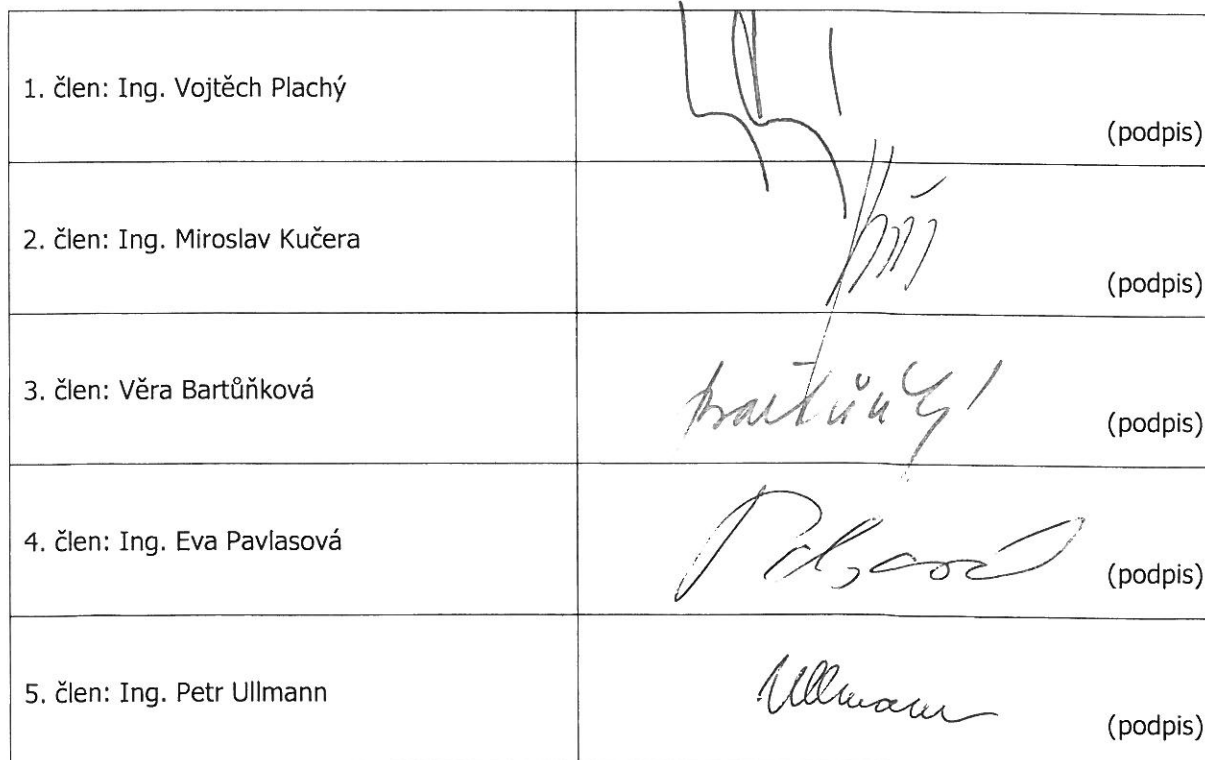 1. člen: Ing. Vojtěch Plachý
(podpis)
2. člen: Ing. Miroslav Kučera
(podpis)
3. člen: Věra Bartůňková
(podpis)
4. člen: Ing. Eva Pavlasová
(podpis)
5. člen: Ing. Petr Ullmann
Ullmann
(podpis)